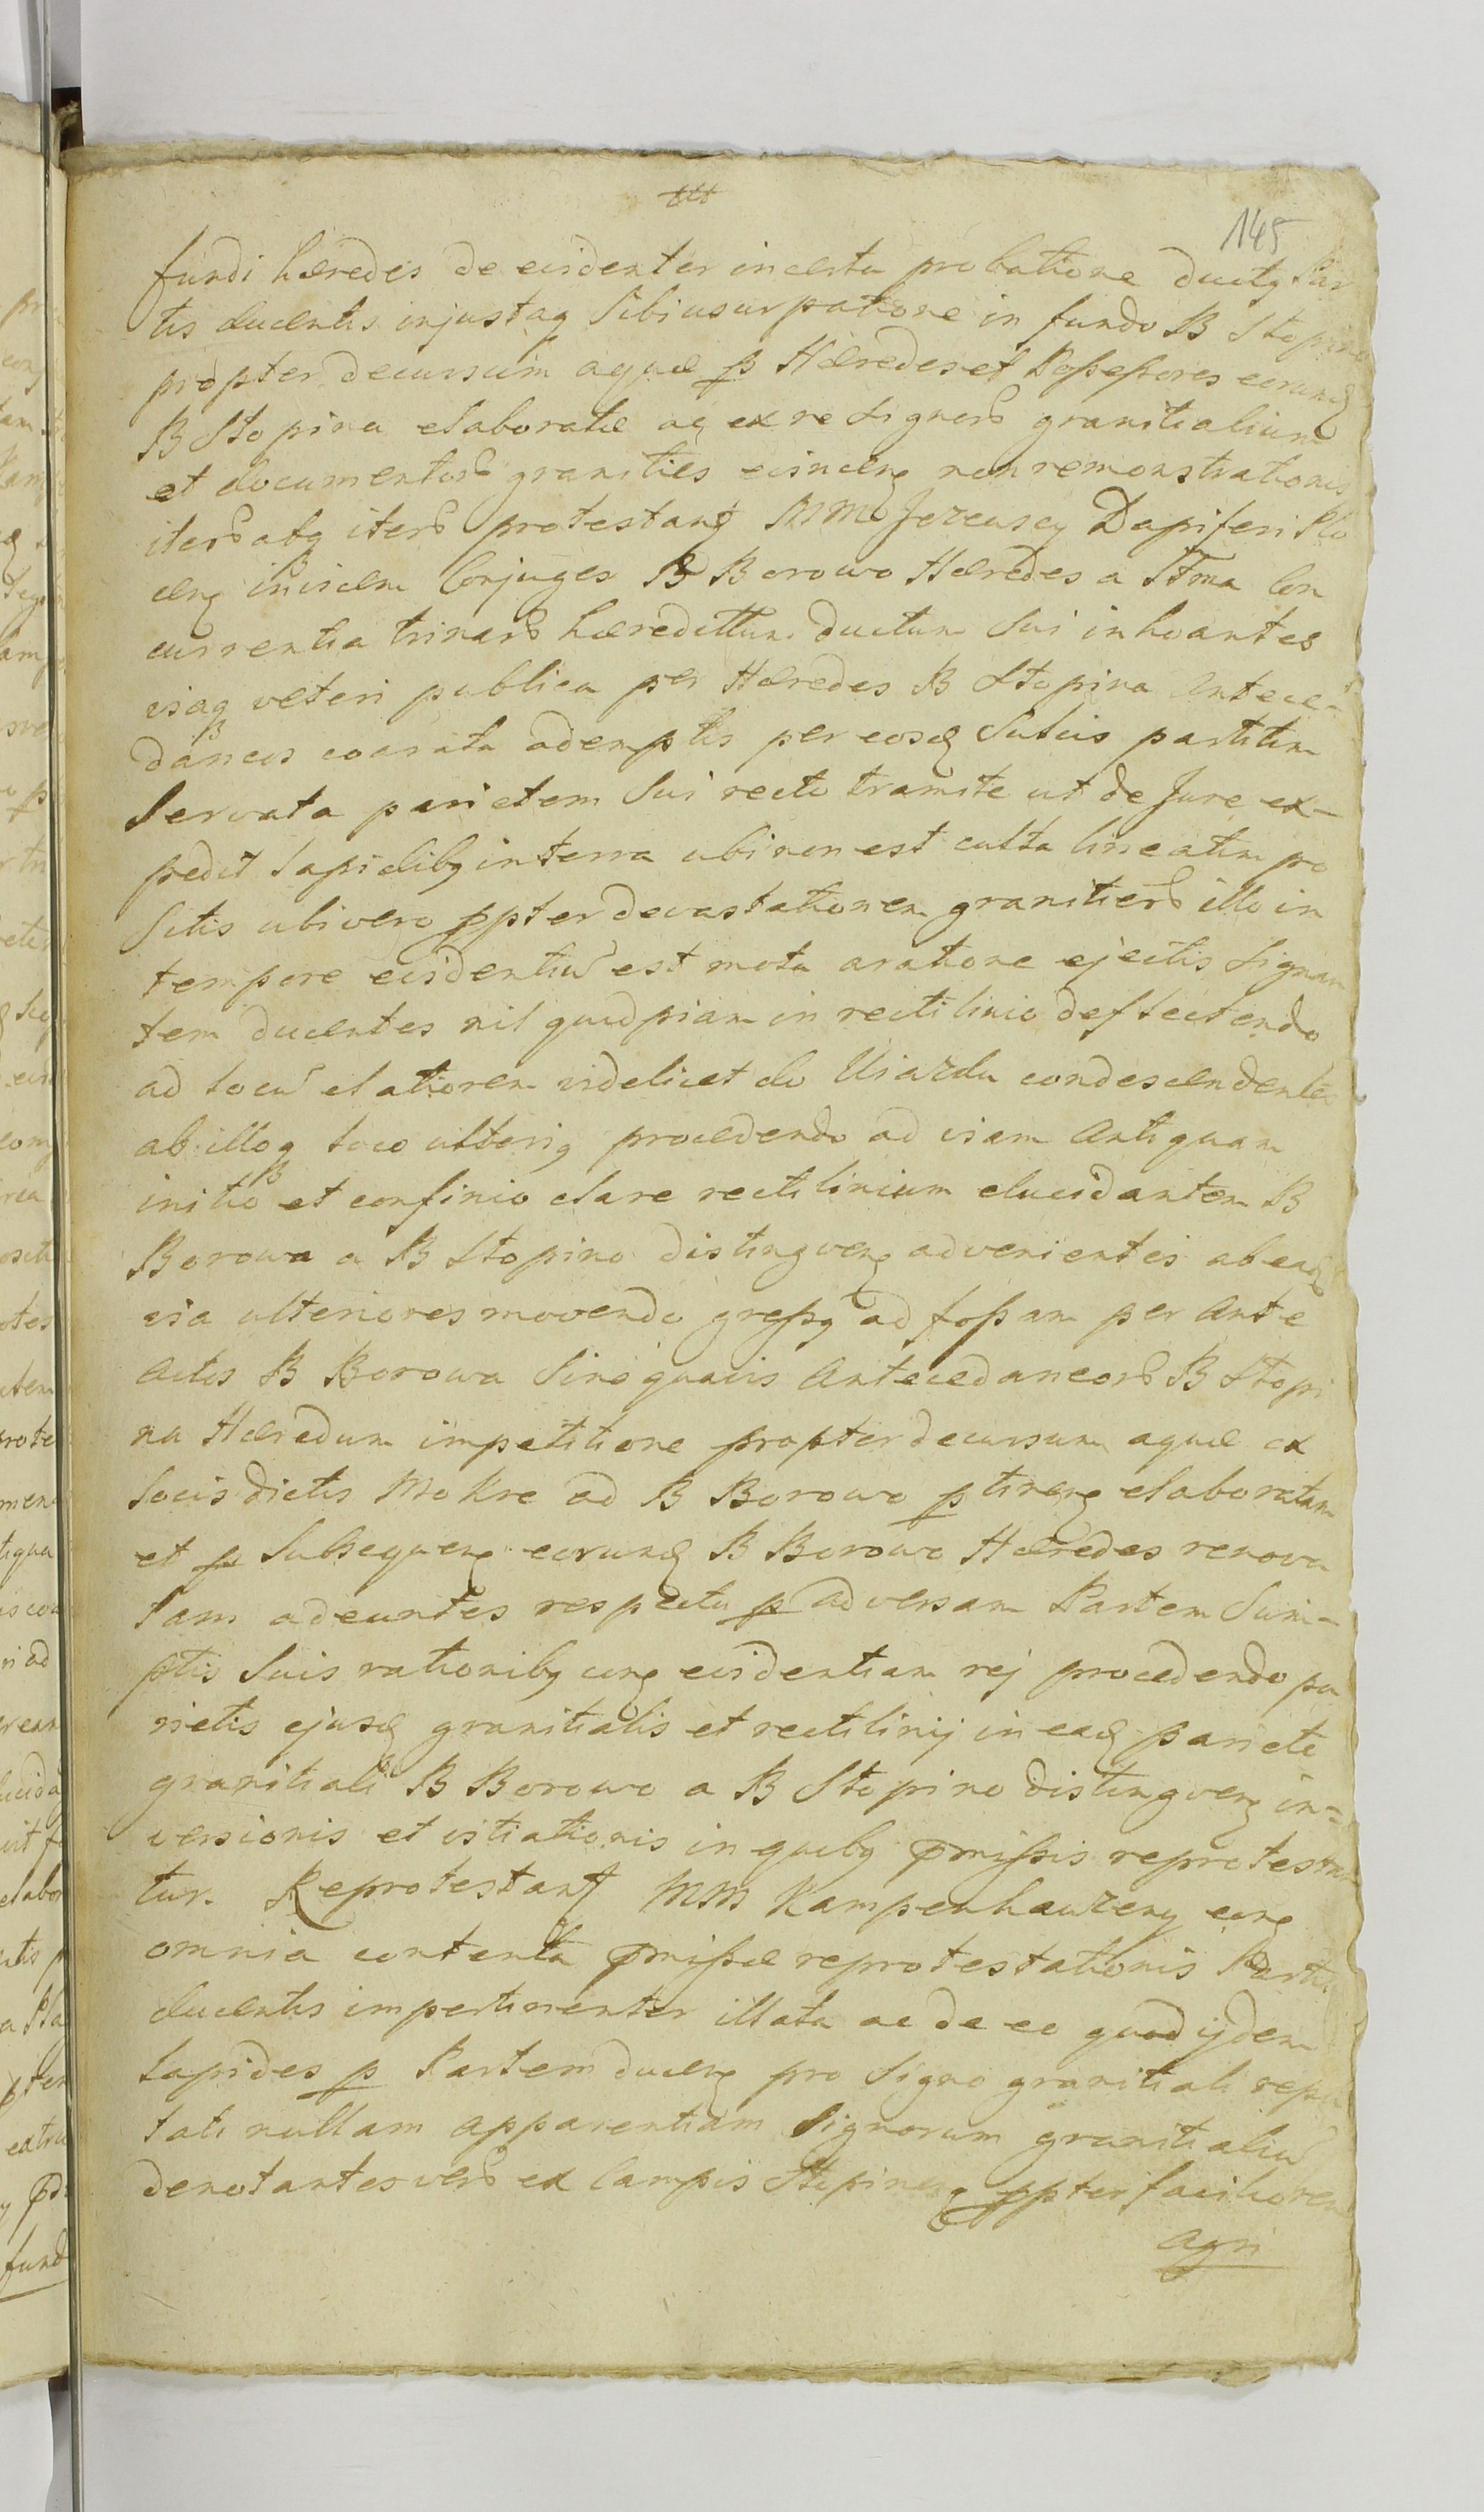 145
fundi hæredes de evidenter incerta probatione ductq Par
tis ducentis injustaq sibi usurpatione in fundo B Stopino
propter decursum aquæ p Hæredes et Possessores eorund
B Stopina elaboratæ aq ex re signorb granitialium
et documentorb granities evincens non remonstrationis
iterb atq iterb protestantq MM Jezewscy Dapiferi Plo
cens invicem Conjuges B Borowo Hæredes a IIma Con
currentia trinarb hæredittum ductum sui inhoantes
viaq veteri publica per Hæredes B Stopina Antece-
daneos coarata ademptis per eosd sulcis partitim
servata parietem sui recto tramite ut de Jure ex-
pedit lapidibq in terra ubi non est culta lineatim po
sitis ubi vero ppter devastationem granitierb illo in
tempore evidentius est mota aratione ejectis signan
tem ducentes nil quidpiam in rectilinio deflectendo
ad locu elatiorem videlicet do Uiazdu condescendentes
ab illoq loco ulteriq procedendo ad viam Antiquam
initio et confinio clare rectilinium elucidantem B
Borowa a B Stopino distingvens advenientes ab ead
via ulteriores movendo gressq ad fossam per Ante
Actos B Borowa sine quavis Antecedaneorb B Stopi
na Hæredum impetitione propter decursum aquæ ex
locis dictis Mokre ad B Borowo ptinens elaboratam
et p subsequens eorund B Borowo Hæredes renova
tam adeuntes respectu p adversam Partem Sum-
ptis suis rationibq cung evidentiam rej procedendo pa
rietis ejusd granitialis et rectilinij in ead pariete
granitiali B Borowo a B Stopino distingvens in-
versionis et vitiationis in quibq pmissis reprotestan
tur. Reprotestant MM Kampenhauzeny cong
omnia contenta pmissæ reprotestationis Partis
ducentis impertinenter illata ac de eo quod ijdem
lapides p Partem ducens pro signo granitiali repu
tati nullam apparentiam signorum granitialiu
denotantes verb ex Campis Stopinens ppter faciliorem
Agri